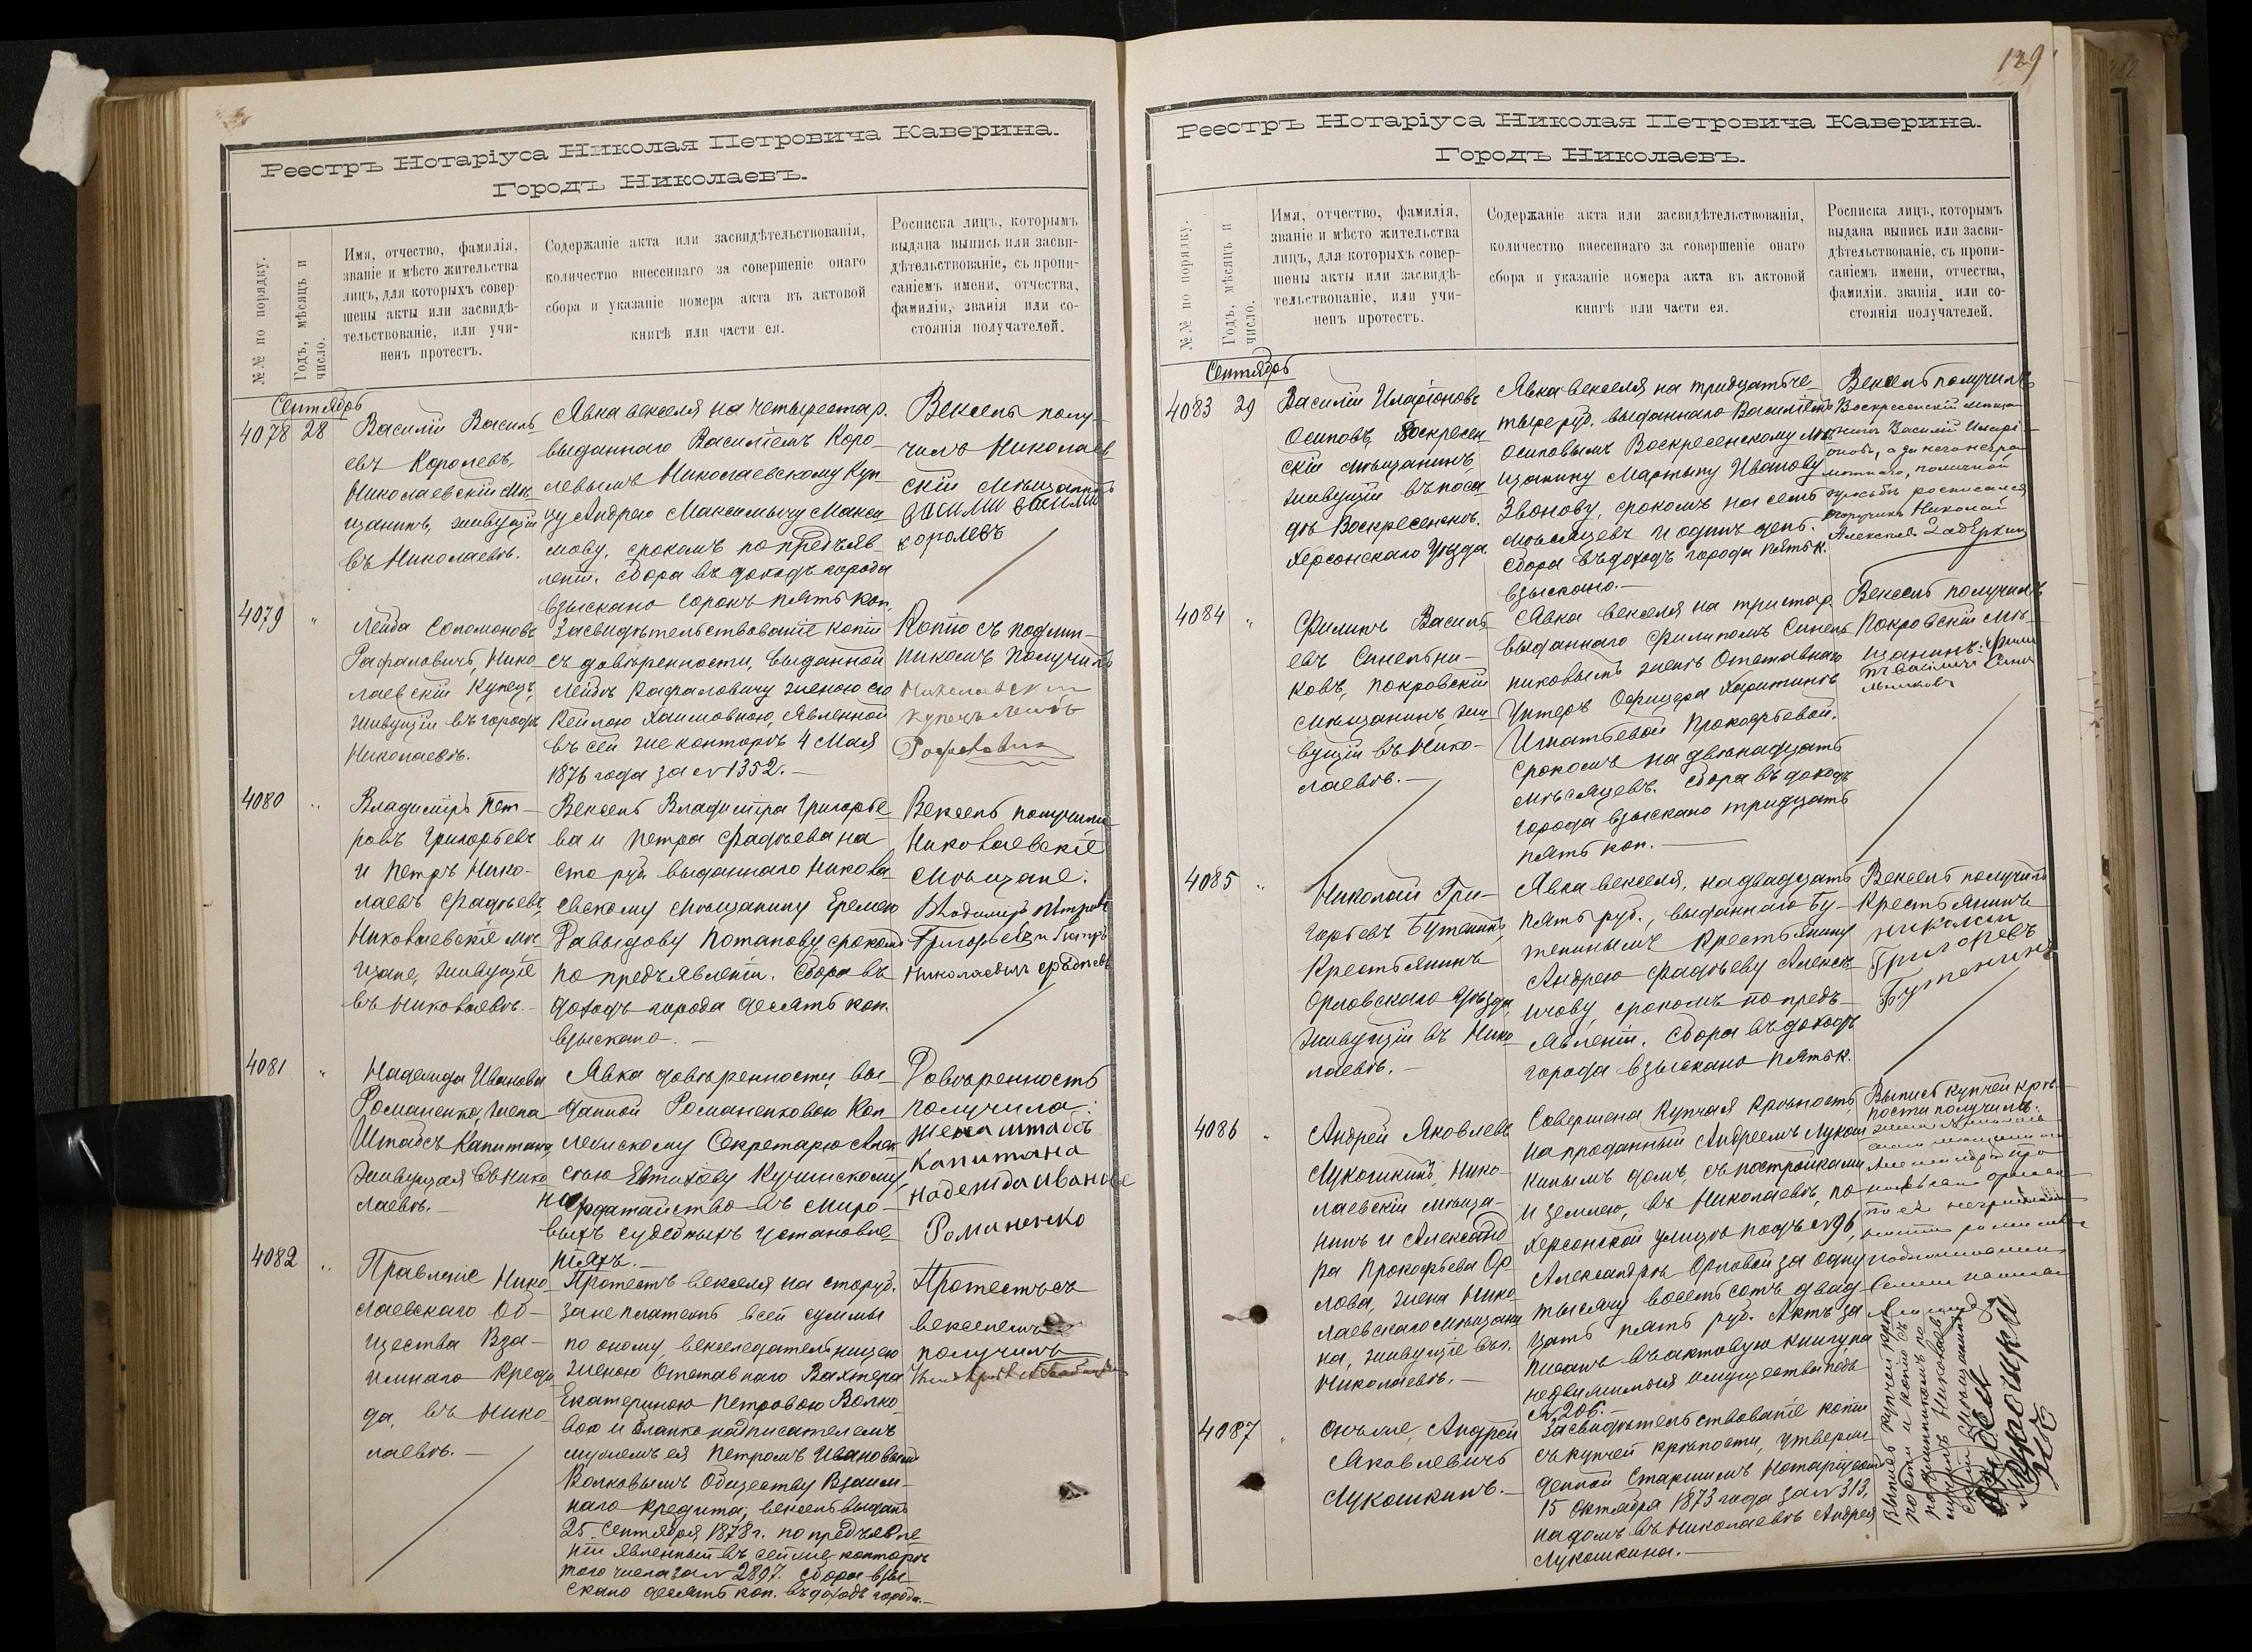 Реестръ Нотаріуса Николая Петровича Каверина.
Городъ Николаевъ.
№№ по порядку.
Годъ, мѣсяцъ и
число.
Имя, отчество, фамилія,
званіе и мѣсто жительства
лицъ, для которыхъ совер-
шены акты или засвидѣ-
тельствованіе, или учи-
ненъ протестъ.
Содержаніе акта или засвидѣтельствованія,
количество внесеннаго за совершеніе онаго
сбора и указаніе номера акта въ актовой
книгѣ или части ея.
Росписка лицъ, которымъ
выдана выпись или засви-
дѣтельствованіе, съ пропи-
саніемъ имени, отчества,
фамиліи, званія или со-
стоянія получателей.
Сентябрь
4078 28
Василій Василь-
евъ Королевъ,
Николаевскій мѣ-
щанинъ, живущій
въ Николаевѣ.
Явка векселя на четыреста р.
выданнаго Василіемъ Коро-
левымъ Николаевскому Куп-
цу Андрею Максимычу Макси-
мову, срокомъ по предъяв-
леніи. Сбора въ доходъ города
взыскано сорокъ пять коп.
Вексель полу-
чилъ Николаев
скій мѣщанинъ
Василий Василий
королевъ
4079 "
Лейба Соломоновъ
Рафаловичъ, Нико-
лаевскій Купецъ,
живущій въ городѣ
Николаевѣ.
Засвидѣтельствованіе копіи
съ довѣренности, выданной
Лейбѣ Рафаловичу женою его
Бейлою Хаимовною, явленной
въ сей же конторѣ 4 Мая
1876 года за № 1352.—
Копію съ подлин-
никомъ получилъ
Николаевскій
купецъ Лейба
Рафалович
4080 "
Владиміръ Пет-
ровъ Григорьевъ
и Петръ Нико-
лаевъ Фадѣевъ,
Николаевскіе мѣ-
щане, живущіе
въ Николаевѣ.—
Вексель Владиміра Григорье-
ва и Петра Фадѣева на
сто руб. выданнаго Никола-
евскому мѣщанину Еремею
Давыдову Потапову, срокомъ
по предъявленіи. Сбора въ
доходъ города десять коп.
взыскано.—
Вексель получили
Николаевскіе
мѣщане:
Владиміръ Петровъ
Григорьевъ и Петръ
Николаевичъ Фадѣевъ
4081 "
Надежда Иванова
Романенко, жена
Штабсъ Капитана,
живущая въ Нико-
лаевѣ.—
Явка довѣренности, вы-
данной Романенковою Кол-
лежскому Секретарю Алек-
сѣю Евтихову Кучинскому
на ходатайство въ миро-
выхъ судебныхъ установле-
ніяхъ.—
Довѣренность
получила:
жена штабсъ
капитана
Надежда Иванова
Романенко
4082 "
Правленіе Нико-
лаевскаго Об-
щества Вза-
имнаго Креди-
та, въ Нико-
лаевѣ.—
Протестъ векселя на сто руб.
за неплатежъ всей суммы
по оному, векселедательницею
женою Отставнаго Вахтера
Екатериною Петровою Волко-
вою и бланконадписателемъ
мужемъ ея Петромъ Ивановымъ
Волковымъ Обществу Взаим-
наго Кредита; вексель выданъ
25 Сентября 1878 г. по предъявле-
ніи явленный въ сей же конторѣ
того числа за № 2897. Сбора взы-
скано десять коп. въ доходъ города.—
Протестъ съ
векселемъ
получилъ
129
Реестръ Нотаріуса Николая Петровича Каверина.
Городъ Николаевъ.
№№ по порядку.
Годъ, мѣсяцъ и
число.
Имя, отчество, фамилія,
званіе и мѣсто жительства
лицъ, для которыхъ совер-
шены акты или засвидѣ-
тельствованіе, или учи-
ненъ протестъ.
Содержаніе акта или засвидѣтельствованія,
количество внесеннаго за совершеніе онаго
сбора и указаніе номера акта въ актовой
книгѣ или части ея.
Росписка лицъ, которымъ
выдана выпись или засви-
дѣтельствованіе, съ пропи-
саніемъ имени, отчества,
фамиліи. званія или со-
стоянія получателей.
Сентябрь
4083 29
Василій Иларіоновъ
Осиповъ, Воскресен-
скій мѣщанинъ,
живущій въ поса-
дѣ Воскресенскъ.
Херсонскаго Уѣзда
Явка векселя на тридцать че-
тыре руб. выданнаго Василіемъ
Осиповымъ Воскресенскому мѣ-
щанину Мартыну Иванову
Звонову, срокомъ на семь
мѣсяцевъ и одинъ день.
Сбора въ доходъ города пять к.
взыскано.—
Вексель получилъ
Воскресенскій мѣща-
нинъ Василій Иларі-
оновъ, а за него негра-
мотнаго, по личной
просьбѣ росписался
поручикъ Николай
4084 "
Филипъ Василь-
евъ Синельни-
ковъ, Покровскій
мѣщанинъ, жи-
вущій въ Нико-
лаевѣ.—
Явка векселя на триста р.
выданнаго Филипомъ Синель-
никовымъ женѣ Отставнаго
Унтеръ Офицера Харитинѣ
Игнатьевой Прокофьевой.
Срокомъ на двѣнадцать
мѣсяцевъ. Сбора въ доходъ
города взыскано тридцать
пять коп.—
Вексель получилъ
Покровскій мѣ-
щанинъ: Фили
пъ Василіевъ Синел
ьниковъ
4085 "
Николай Гри-
горьевъ Бутенинъ,
Крестьянинъ
Орловскаго Уѣзда,
живущій въ Нико-
лаевѣ.—
Явка векселя, на двадцать
пять руб., выданнаго Бу-
тенинымъ Крестьянину
Андрею Фадѣеву Алекс-
ичову, срокомъ по предъ-
явленіи. Сбора въ доходъ
города взыскано пять к.
Вексель получилъ
Крестьянинъ
николай
Григоревъ
Бутенинъ
4086 "
Андрей Яковлевъ
Лукошкинъ, Нико-
лаевскій мѣща-
нинъ и Александ-
ра Прокофьева Ор-
лова, жена Нико-
лаевскаго мѣщани-
на, живущіе въ г.
Николаевѣ.—
Совершена Купчая Крѣпость
на проданный Андреемъ Лукош-
кинымъ домъ, съ постройками
и землею, въ Николаевѣ, по
Херсонской улицѣ подъ № 96,
Александрѣ Орловой за одну
тысячу восемьсотъ двад-
цать пять руб. Актъ за-
писанъ въ актовую книгу на
недвижимыя имущества подъ
№ 206.—
Выпись купчей крѣ-
пости получила:
4087 "
Онъ же, Андрей
Яковлевичъ
Лукошкинъ.—
Засвидѣтельствованіе копіи
съ купчей крѣпости, утверж-
денной Старшимъ Нотаріусомъ
15 Октября 1873 года за № 313,
на домъ въ Николаевѣ Андрея
Лукошкина.—
Выпись купчей крѣ-
пости и копію съ
подлинникомъ по-
лучилъ Николаев-
скій мѣщанинъ
Андрей
Лукошкин